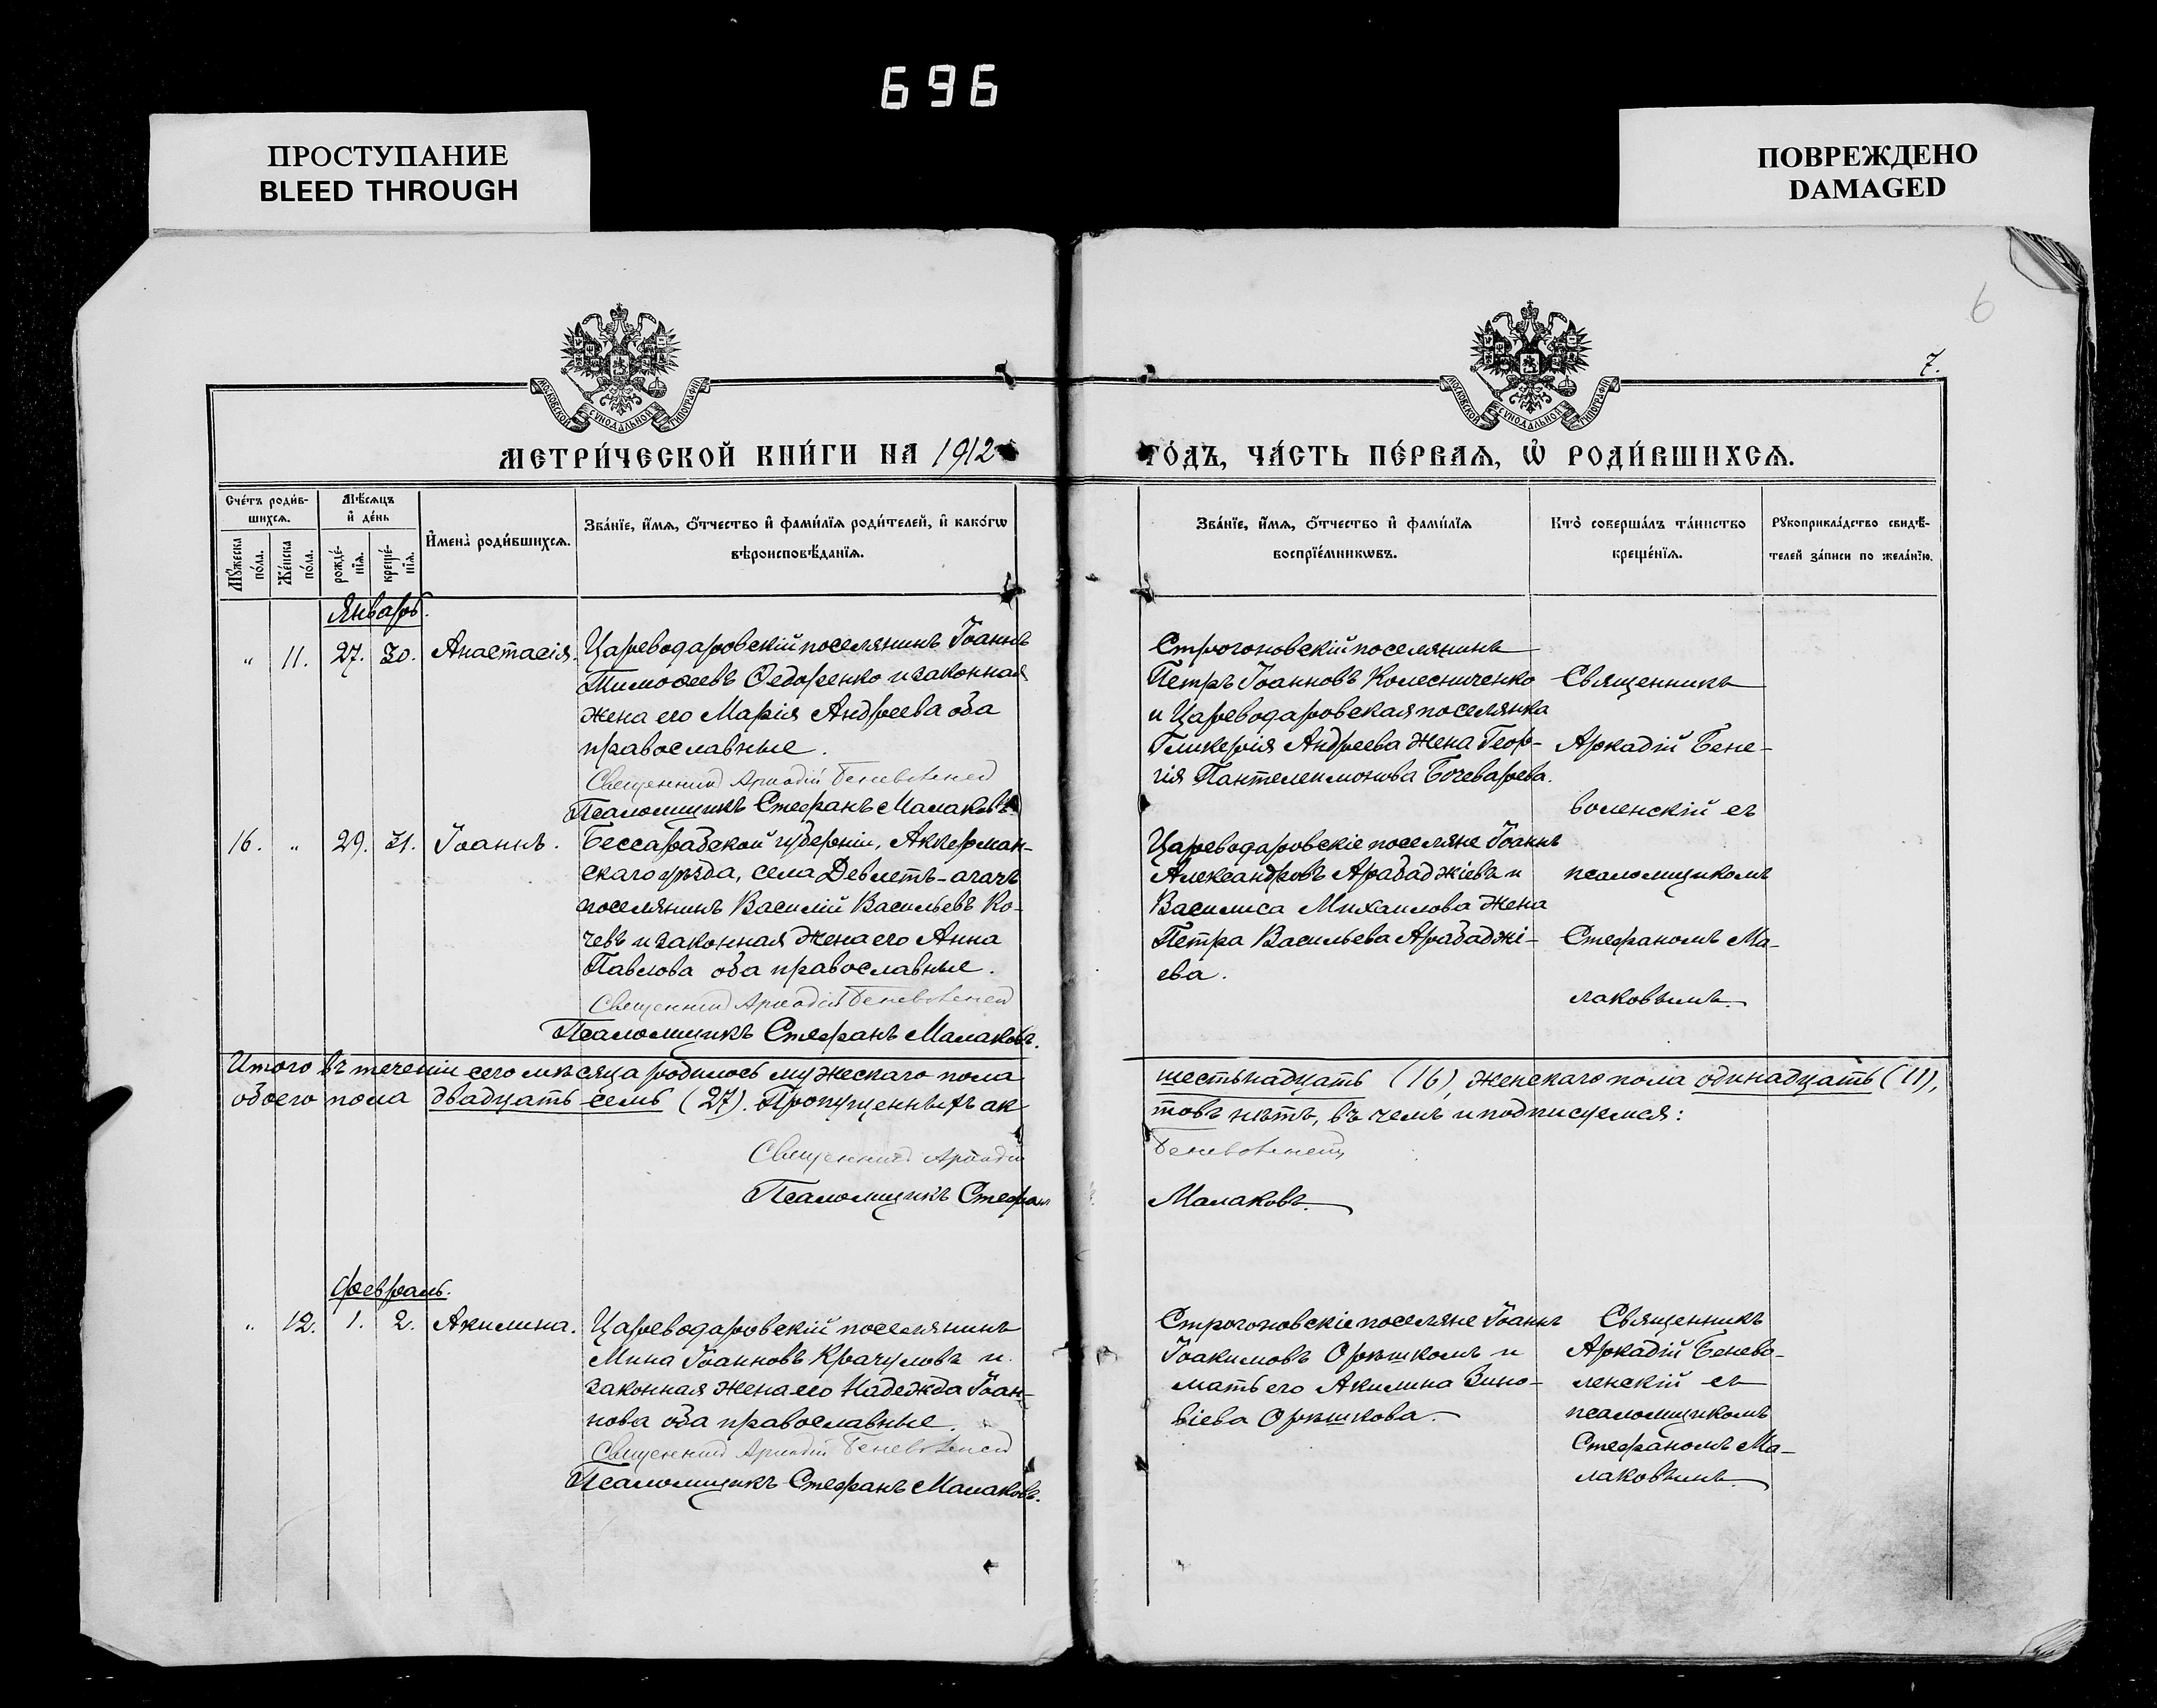 696
ПРОСТУПАНИЕ
BLEED THROUGH
ПОВРЕЖДЕНО
DAMAGED
6
7.
МОСКОВСКОЙ СѴНОДАЛЬНОЙ ТИПОГРАФІИ
МОСКОВСКОЙ СѴНОДАЛЬНОЙ ТИПОГРАФІИ
МЕТРИ́ЧЕСКОЙ КНИ́ГИ НА 1912
ГО́ДЪ, ЧА́СТЬ ПЕ́РВАѦ, Ѡ҆ РОДИ́ВШИХСѦ.
Сче́тъ роди́в-
шихсѧ.
Мѣ́сѧцъ
и҆ де́нь
Мꙋ́жеска по́ла.
Же́нска по́ла.
рожде́-
нїѧ.
креще́-
нїѧ.
И҆мена̀ роди́вшихсѧ.
Зва́нїе, и҆́мѧ, ѻ҆́тчество и҆ фами́лїѧ роди́телей, и҆ како́гѡ
вѣроисповѣ́данїѧ.
Зва́нїе, и҆́мѧ, ѻ҆́тчество и҆ фами́лїѧ
воспрїе́мникѡвъ.
Кто̀ соверша́лъ та́инство
креще́нїѧ.
Рꙋкоприкла́дство свидѣ́-
телей за́писи по жела́нїю.
Январь.
" 11. 27. 30. Анастасія. Цареводаровскій поселянинъ Іоаннъ
Тимоѳеевъ Ѳедоренко и законная
жена его Марія Андреева оба
православные.
Священникъ Аркадій Беневоленскій
Псаломщикъ Стефанъ Малаковъ.
Строгоновскій поселянинъ
Петръ Іоанновъ Колесниченко
и Цареводаровская поселянка
Гликерія Андреева жена Геор-
гія Пантелеимонова Бочеварева.
Священникъ
Аркадій Бене-
воленскій съ
псаломщикомъ
Стефаномъ Ма-
лаковымъ.
16. " 29. 31. Іоаннъ. Бессарабской губерніи, Аккерман-
скаго уѣзда, села Девлетъ-агачъ
поселянинъ Василій Васильевъ Ко-
чевъ и законная жена его Анна
Павлова оба православные.
Священникъ Аркадій Беневоленскій
Псаломщикъ Стефанъ Малаковъ.
Цареводаровскіе поселяне Іоаннъ
Александровъ Арабаджіевъ и
Василиса Михаилова жена
Петра Васильева Арабаджі-
ева.
Итого въ теченіи сего мѣсяца родилось мужескаго пола
шестьнадцать (16), женскаго пола одинадцать (11),
обоего пола двадцать семь (27). Пропущенныхъ ак
товъ нѣтъ, въ чемъ и подписуемся:
Священникъ Аркадій
Беневоленскій
Псаломщикъ Стефан
Малаковъ.
Февраль.
" 12. 1. 2. Акилина. Цареводаровскій поселянинъ
Мина Іоанновъ Крачуловъ и
законная жена его Надежда Іоан-
нова оба православные.
Священникъ Аркадій Беневоленскій
Псаломщикъ Стефанъ Малаковъ.
Строгоновскіе поселяне Іоаннъ
Іоакимовъ Орѣшкомъ и
мать его Акилина Зино-
віева Орѣшкова.
Священникъ
Аркадій Бенево-
ленскій съ
псаломщикомъ
Стефаномъ Ма-
лаковымъ.